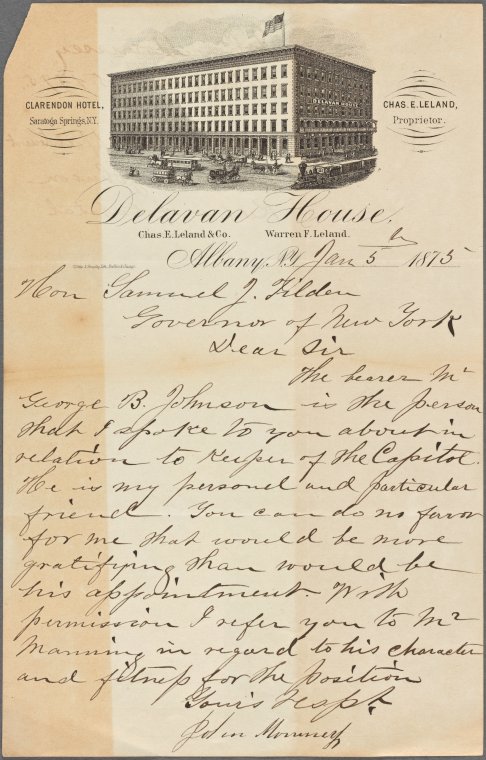 DELAVAN HOUSE
CLARENDON HOTEL,
Saratoga Springs, N.Y.
CHAS. E. LELAND,
Proprietor.
Delavan House,
Chas. E. Leland & Co. Warren F. Leland.
Albany, N.Y. Jan 5th 1875
Hon Samuel J. Tilden
Governor of New York
Dear Sir
The bearer Mr
George B. Johnson is the person
that I spoke to you about in
relation to Keeper of the Capitol.
He is my personel and particular
friend. You can do no favor
for me that would be more
gratifying than would be
his appointment With
permission I refer you to Mr
Manning in regard to his character
and fitness for the position
Yours respt.
John